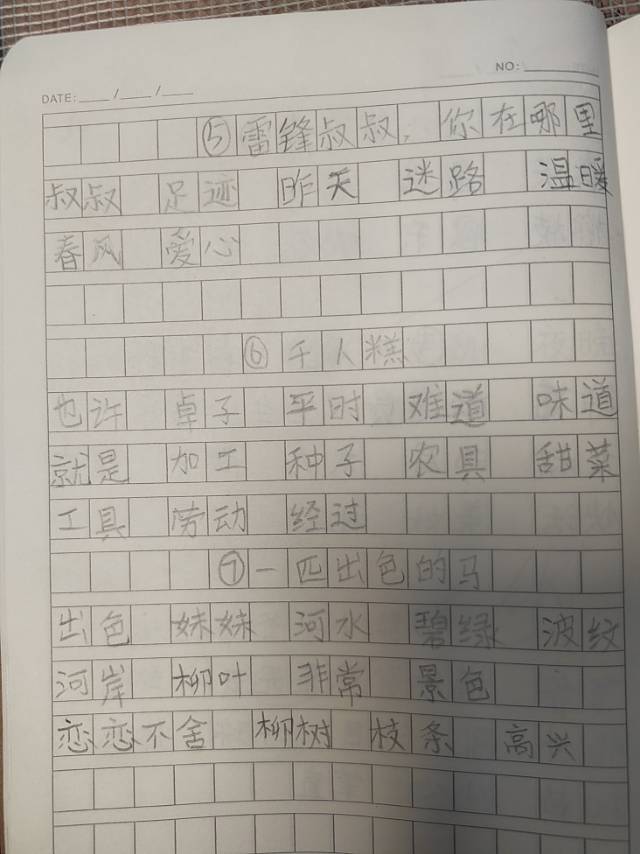 DATE: ___/___/___ NO: ______
⑤雷锋叔叔,你在哪里
叔叔 足迹 昨天 迷路 温暖
春风 爱心
⑥千人糕
也许 卓子 平时 难道 味道
就是 加工 种子 农具 甜菜
工具 劳动 经过
⑦一匹出色的马
出色 妹妹 河水 碧绿 波纹
河岸 柳叶 非常 景色
恋恋不舍 柳树 枝条 高兴